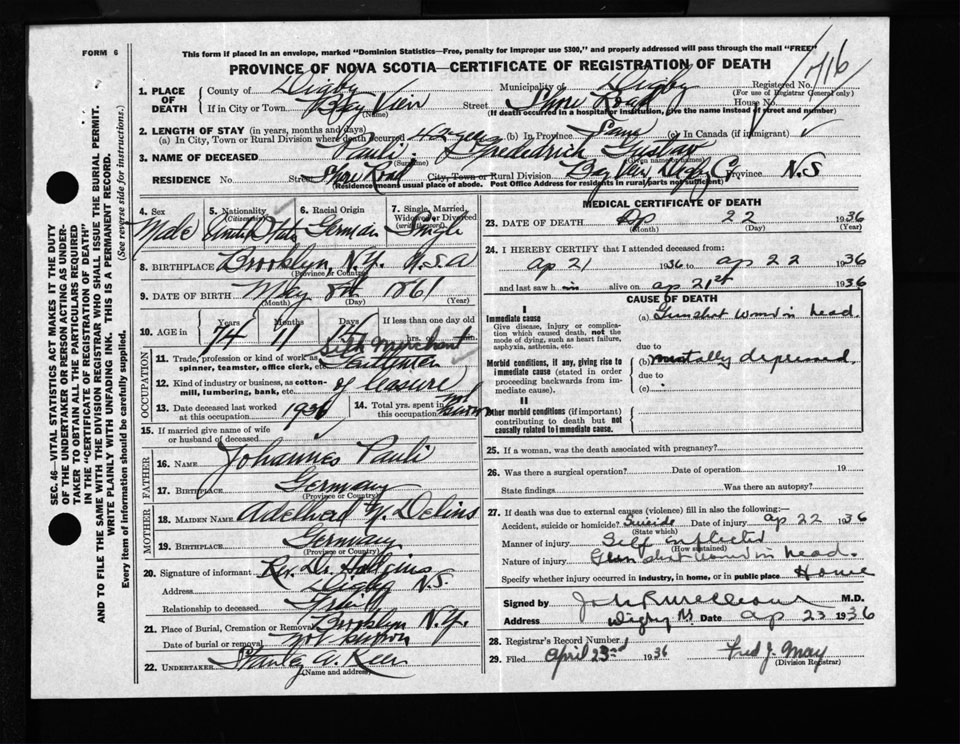 FORM 6
This form if placed in an envelope, marked "Dominion Statistics—Free, penalty for improper use $300," and properly addressed will pass through the mail "FREE"
PROVINCE OF NOVA SCOTIA—CERTIFICATE OF REGISTRATION OF DEATH
716
1. PLACE OF DEATH County of Digby Municipality of Digby Registered No.
(For use of Registrar General only)
If in City or Town Bay View Street Shore Road House No.
(Name) (If death occurred in a hospital or institution, give the name instead of street and number)
2. LENGTH OF STAY (in years, months and days)
(a) In City, Town or Rural Division where death occurred (b) In Province Same (c) In Canada (if immigrant) ✓
3. NAME OF DECEASED Pauli Friedrich Gustav
(Surname) (Given names)
RESIDENCE No. Street Shore Road City, Town or Rural Division Bay View Digby Co Province N.S
(Residence means usual place of abode. Post Office Address for residents in rural parts not sufficient)
4. Sex 5. Nationality (Citizenship) 6. Racial Origin 7. Single, Married, Widowed or Divorced (write the word)
Male United States German Single
8. BIRTHPLACE Brooklyn N.Y. U.S.A
(Province or Country)
9. DATE OF BIRTH May 8th 1861
(Month) (Day) (Year)
10. AGE in Years Months Days If less than one day old
74 11 hrs. min.
11. Trade, profession or kind of work as spinner, teamster, office clerk, etc. Merchant
Gentleman
12. Kind of industry or business, as cotton-mill, lumbering, bank, etc. of leasure
13. Date deceased last worked at this occupation 1936 14. Total yrs. spent in this occupation
15. If married give name of wife or husband of deceased
FATHER
16. NAME Johannes Pauli
17. BIRTHPLACE Germany
(Province or Country)
MOTHER
18. MAIDEN NAME Adelheid Delius
19. BIRTHPLACE Germany
(Province or Country)
20. Signature of informant Rev. Dr.
Address Digby N.S.
Relationship to deceased Friend
21. Place of Burial, Cremation or Removal Brooklyn N.Y.
Date of burial or removal not known
22. UNDERTAKER Stanley A. Keen
(Name and address)
MEDICAL CERTIFICATE OF DEATH
23. DATE OF DEATH Ap 22 1936
(Month) (Day) (Year)
24. I HEREBY CERTIFY that I attended deceased from:
ap 21 1936 to ap 22 1936
and last saw h im alive on ap 21st 1936
CAUSE OF DEATH
I
Immediate cause (a) Gunshot wound in head.
Give disease, injury or complication which caused death, not the mode of dying, such as heart failure, asphyxia, asthenia, etc.
due to
Morbid conditions, if any, giving rise to immediate cause (stated in order proceeding backwards from immediate cause). (b) mentally depressed
due to
(c)
II
Other morbid conditions (if important) contributing to death but not causally related to immediate cause.
25. If a woman, was the death associated with pregnancy?
26. Was there a surgical operation? Date of operation 19
State findings Was there an autopsy?
27. If death was due to external causes (violence) fill in also the following:—
Accident, suicide or homicide? Suicide Date of injury ap 22 1936
(State which)
Manner of injury Self inflicted
(How sustained)
Nature of injury Gun shot wound in head.
Specify whether injury occurred in industry, in home, or in public place Home
Signed by M.D.
Address Digby NS Date ap 23 1936
28. Registrar's Record Number
29. Filed April 23rd 1936 Fred J. May
(Division Registrar)
OCCUPATION
SEC. 46—VITAL STATISTICS ACT MAKES IT THE DUTY
OF THE UNDERTAKER OR PERSON ACTING AS UNDER-
TAKER TO OBTAIN ALL THE PARTICULARS REQUIRED
IN THE "CERTIFICATE OF REGISTRATION OF DEATH"
AND TO FILE THE SAME WITH THE DIVISION REGISTRAR WHO SHALL ISSUE THE BURIAL PERMIT.
WRITE PLAINLY WITH UNFADING INK. THIS IS A PERMANENT RECORD.
Every item of information should be carefully supplied. (See reverse side for instructions.)